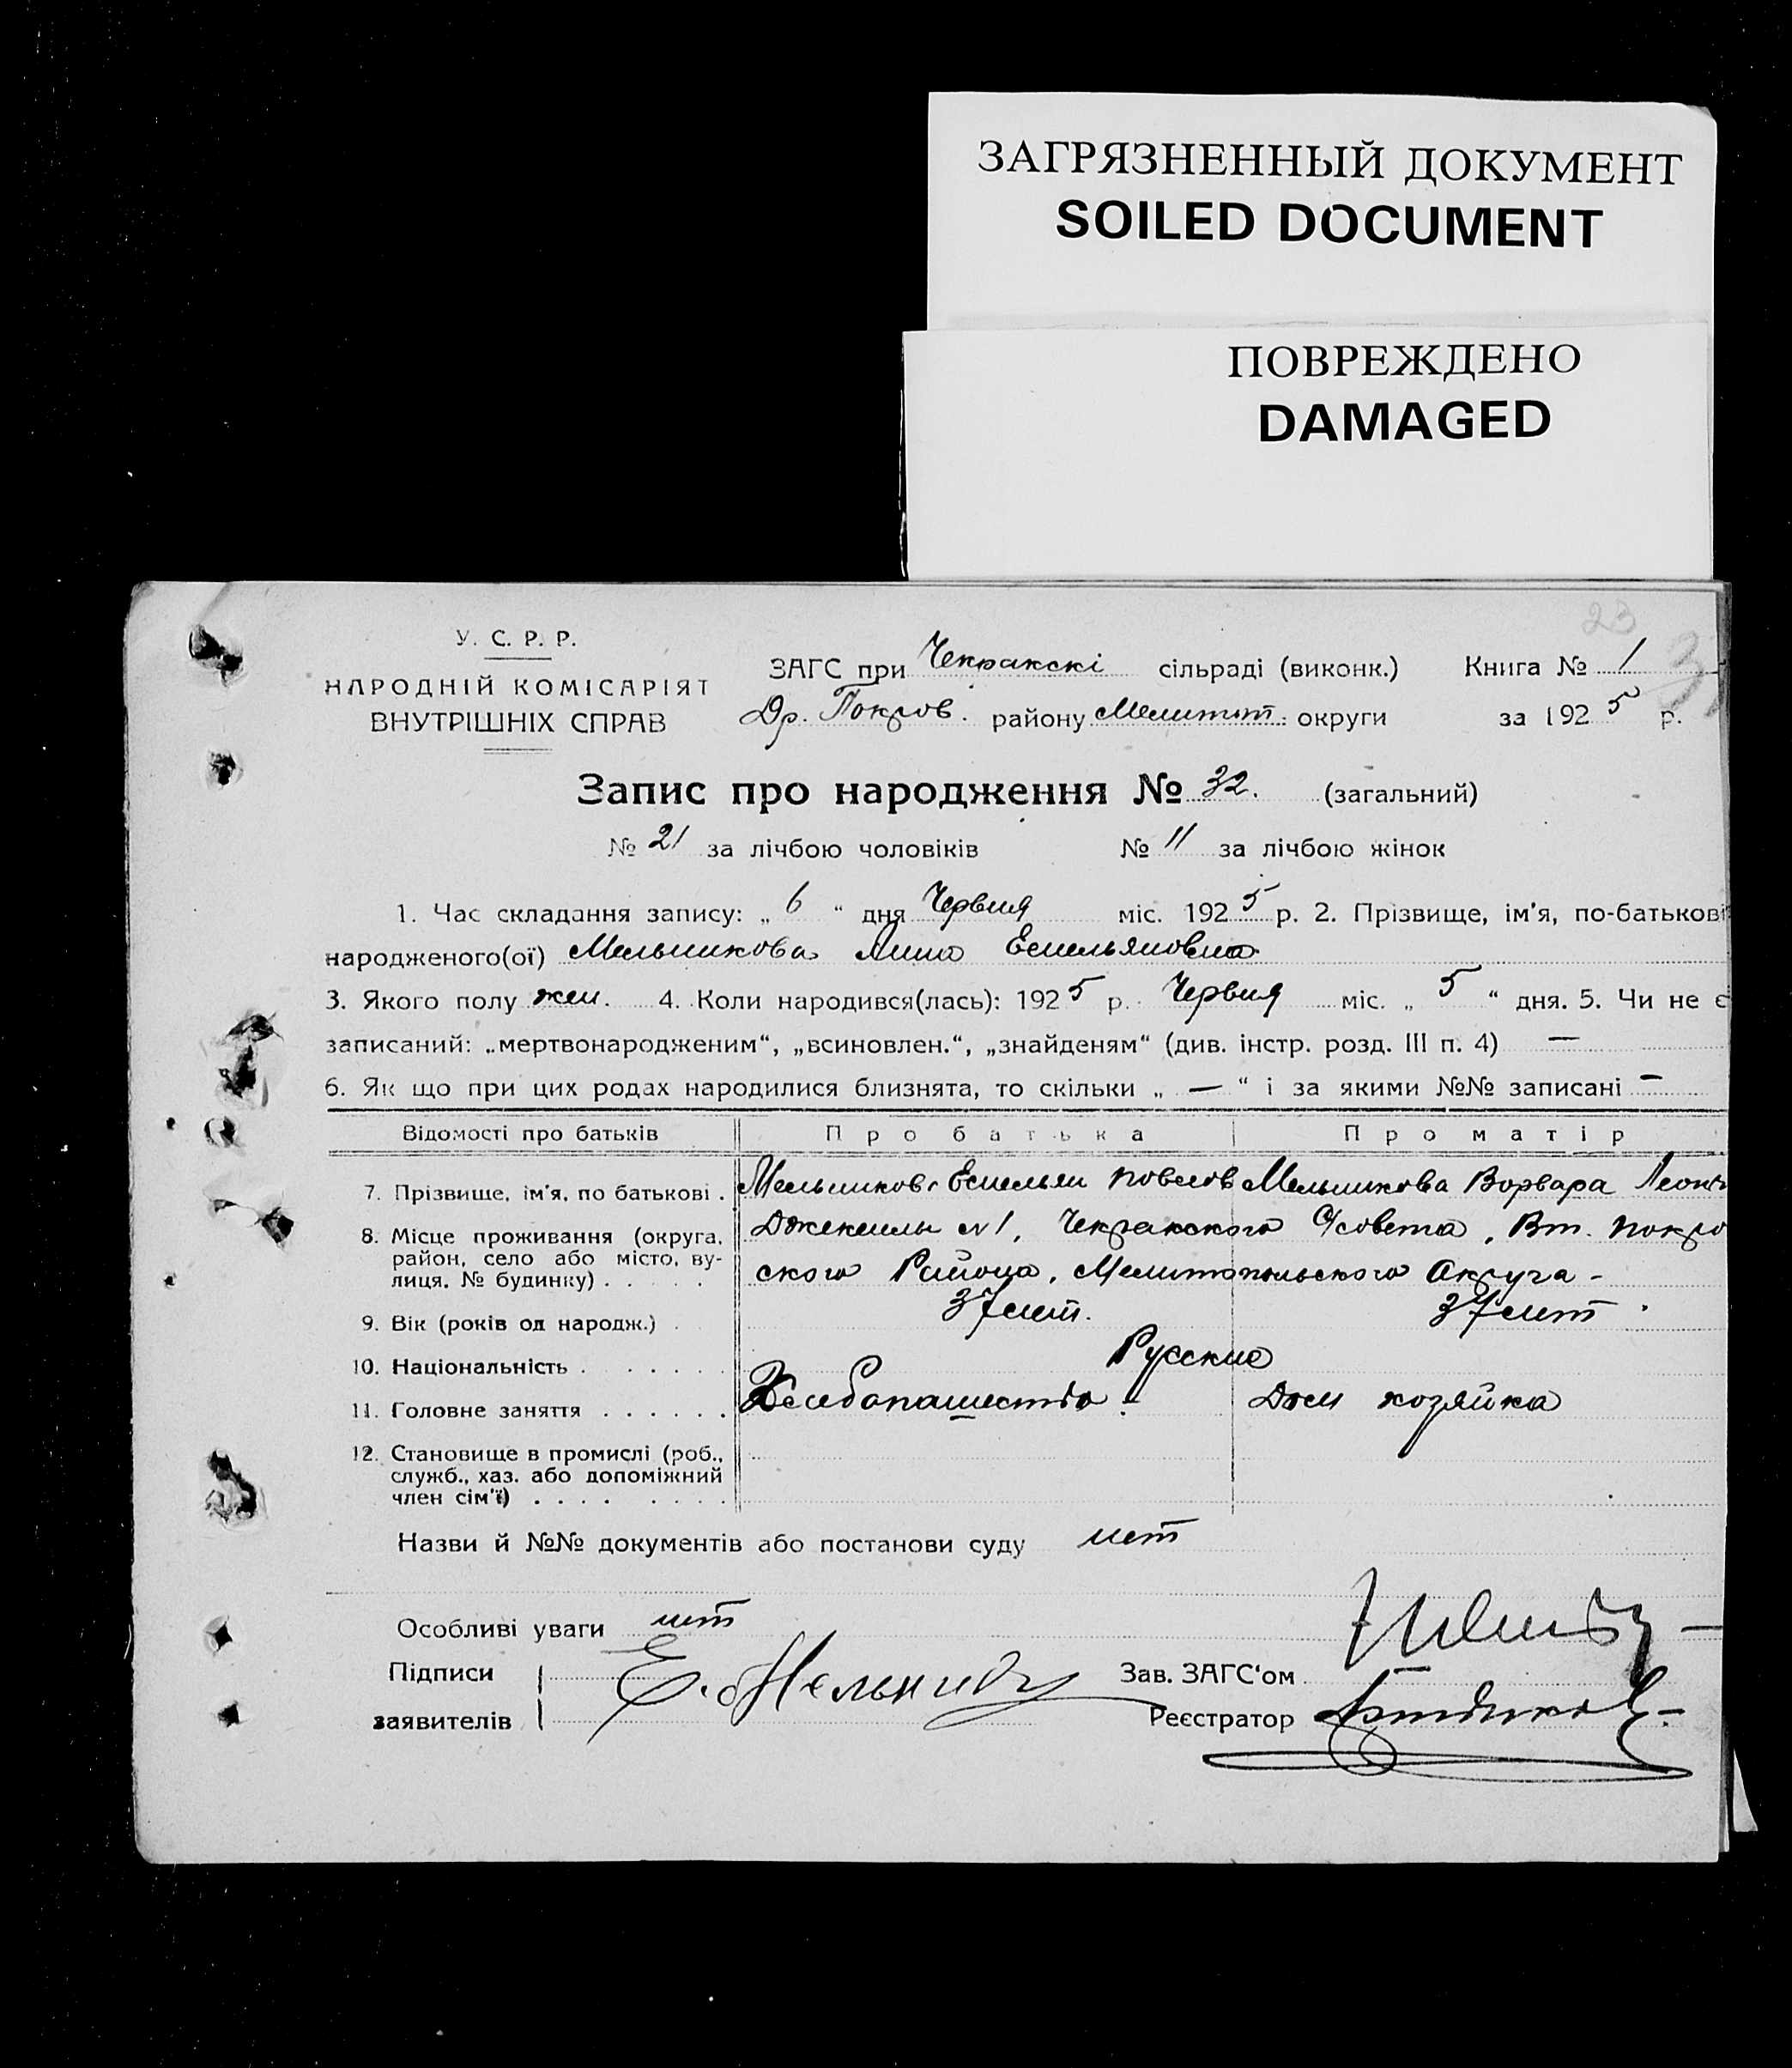 ЗАГРЯЗНЕННЫЙ ДОКУМЕНТ
SOILED DOCUMENT
ПОВРЕЖДЕНО
DAMAGED
23
У. С. Р. Р.
НАРОДНІЙ КОМІСАРІЯТ
ВНУТРІШНІХ СПРАВ
ЗАГС при Чекракскі сільраді (виконк.) Книга № 1
Др. Покров. району Мелитоп. округи за 1925 р.
Запис про народження № 32. (загальний)
№ 21 за лічбою чоловіків № 11 за лічбою жінок
1. Час складання запису: „ 6 “ дня Червня міс. 1925 р. 2. Прізвище, ім'я, по-батькові
народженого(ої) Мельникова Анна Емельяновна
3. Якого полу жен. 4. Коли народився(лась): 1925 р. Червня міс. „ 5 “ дня. 5. Чи не є
записаний: „мертвонародженим“, „всиновлен.“, „знайденям“ (див. інстр. розд. III п. 4) —
6. Як що при цих родах народилися близнята, то скільки „ — “ і за якими №№ записані —
Відомості про батьків Про батька Про матір
7. Прізвище, ім'я, по батькові . Мельников Емельян Повелов Мельникова Ворвара Леонт
8. Місце проживання (округа, район, село або місто, ву-лиця, № будинку) . . . . . Джекельн №1, Чекракского С/совета, Вт. Покро
ского Района, Мелитопольского Округа -
9. Вік (років од народж.) . 37 лет. 37 лет
10. Національність . . . . . . Русские
11. Головне заняття . . . . . . Хлебопашество. Дом хозяйка
12. Становище в промислі (роб.,
служб., хаз. або допоміжний
член сім'ї) . . . . . . . .
Назви й №№ документів або постанови суду нет
Особливі уваги нет
Підписи Е. Мельников Зав. ЗАГС'ом
заявителів Реєстратор